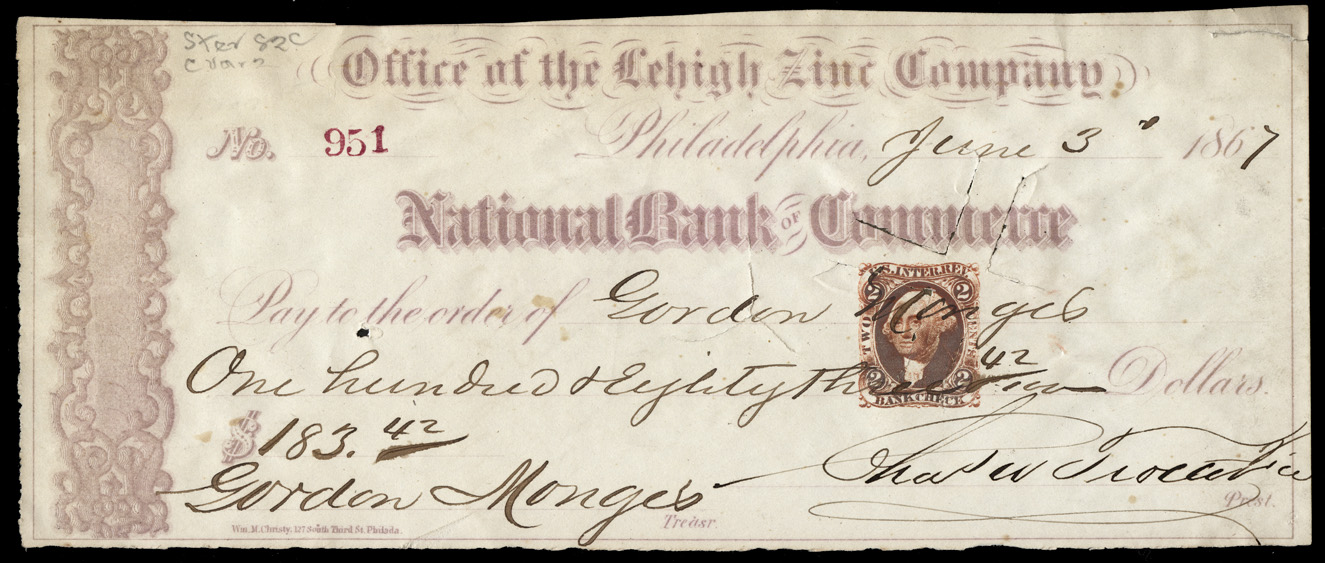 Ster 82C
C Var 2
Office of the Lehigh Zinc Company
No. 951 Philadelphia, June 3ᵈ 1867
National Bank OF Commerce
Pay to the order of Gordon Monges
U.S. INTER. REV.
2 2
TWO CENTS
2 2
BANK CHECK
One hundred & Eighty three 42/100 Dollars.
$183.42
Gordon Monges Treasr.
Chas W Vice Prest.
Wm. M. Christy, 127 South Third St. Philada.